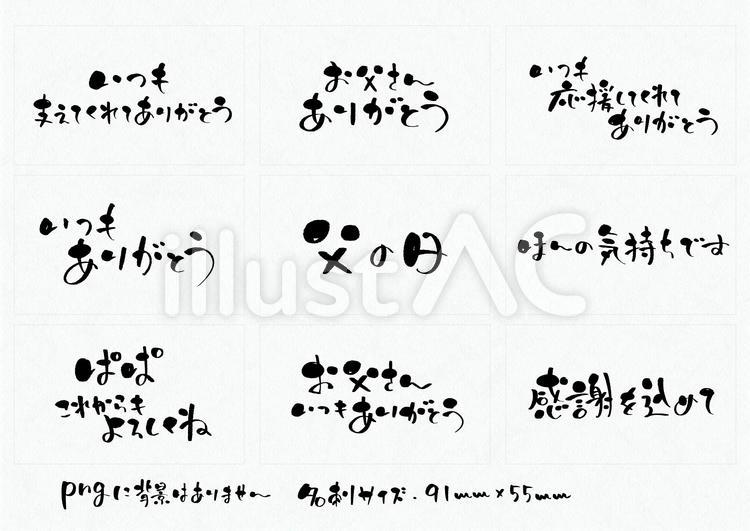 いつも
支えてくれてありがとう
お父さん
ありがとう
いつも
応援してくれて
ありがとう
いつも
ありがとう
父の日
ほんの気持ちです
ぱぱ
これからも
よろしくね
お父さん
いつもありがとう
感謝を込めて
pngに背景はありません 名刺サイズ・91mm×55mm
illustAC